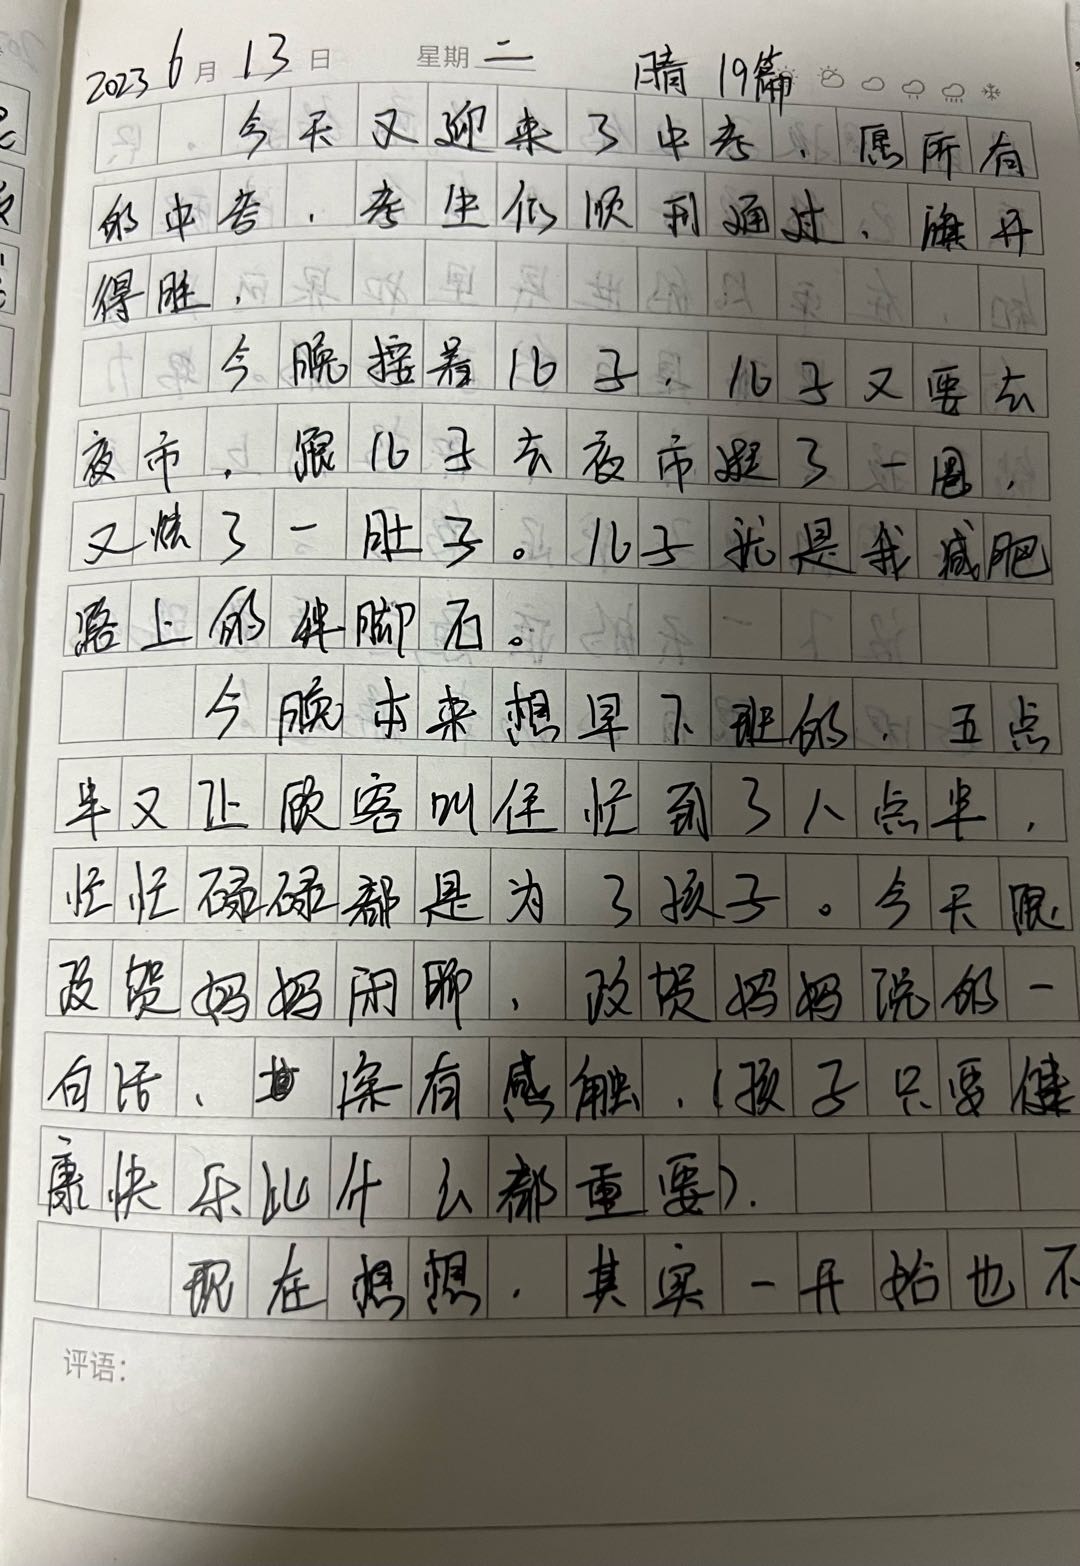 2023 6月 13日 星期 二 晴 19篇
今天又迎来了中考,愿所有
的中考,考生们顺利通过,旗开
得胜,
今晚接着儿子,儿子又要去
夜市,跟儿子去夜市逛了一圈,
又炫了一肚子。儿子就是我减肥
路上的绊脚石。
今晚本来想早下班的,五点
半又让顾客叫住忙到了八点半,
忙忙碌碌都是为了孩子。今天跟
政贺妈妈闲聊,政贺妈妈说的一
句话,深有感触,(孩子只要健
康快乐比什么都重要).
现在想想,其实一开始也不
评语: